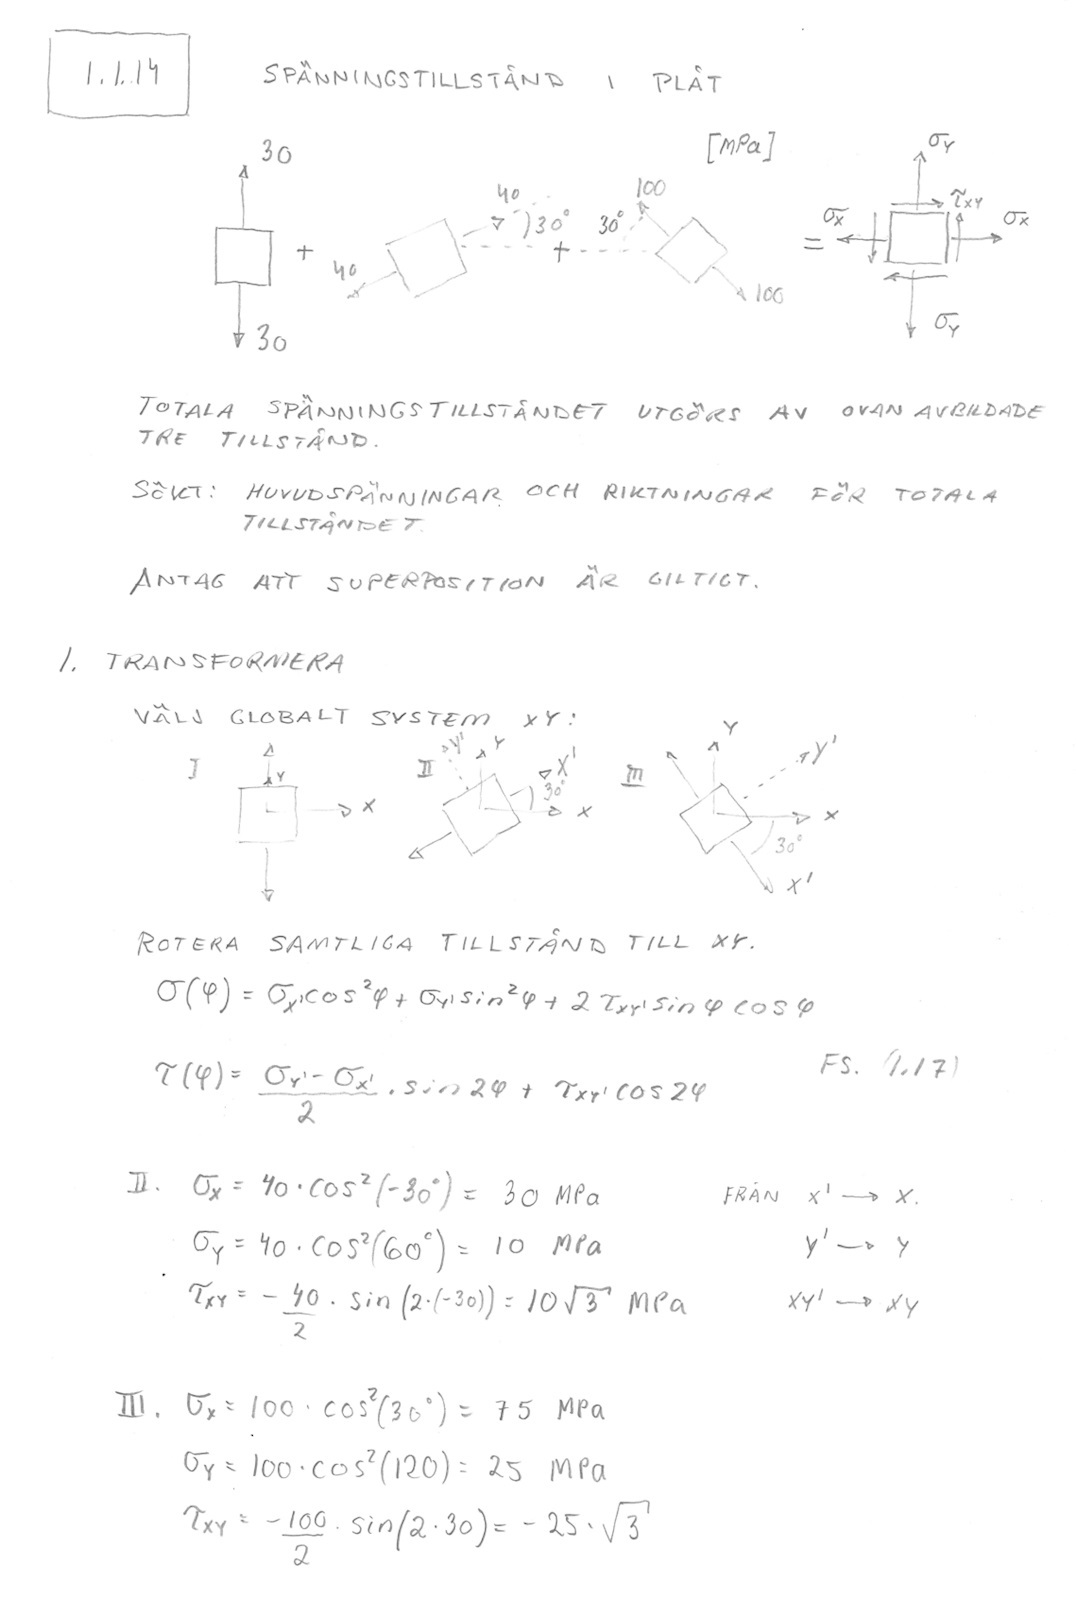 1.1.14
SPÄNNINGSTILLSTÅND I PLÅT
[MPa]
30
+
40
40
30°
+
30°
100
100
=
σy
τxy
σx
σx
σy
30
TOTALA SPÄNNINGSTILLSTÅNDET UTGÖRS AV OVAN AVBILDADE
TRE TILLSTÅND.
SÖKT: HUVUDSPÄNNINGAR OCH RIKTNINGAR FÖR TOTALA
TILLSTÅNDET.
ANTAG ATT SUPERPOSITION ÄR GILTIGT.
1. TRANSFORMERA
VÄLJ GLOBALT SYSTEM XY:
I
Y
X
II
Y'
Y
X'
30°
X
III
Y
Y'
X
30°
X'
ROTERA SAMTLIGA TILLSTÅND TILL XY.
σ(φ) = σx' cos²φ + σy' sin²φ + 2 τxy' sin φ cos φ
τ(φ) = (σy' - σx')/2 · sin 2φ + τxy' cos 2φ
FS. (1.17)
II. σx = 40 · cos²(-30°) = 30 MPa FRÅN X' → X.
σy = 40 · cos²(60°) = 10 MPa Y' → Y
τxy = -40/2 · sin(2·(-30)) = 10√3 MPa XY' → XY
III. σx = 100 · cos²(30°) = 75 MPa
σy = 100 · cos²(120) = 25 MPa
τxy = -100/2 · sin(2·30) = -25·√3